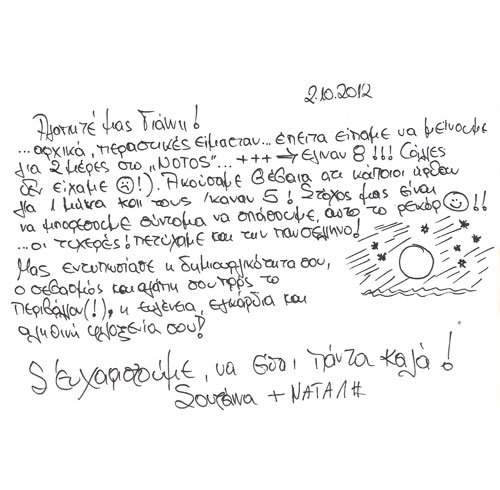 2.10.2012
Αγαπητέ μας Γιάννη!
...αρχικά, περαστικές είμασταν... έπειτα είπαμε να μείνουμε
για 2 μέρες στο „NOTOS"... +++ → έγιναν 8!!! (άλλες
δεν είχαμε ☹!). Ακούσαμε βέβαια ότι κάποιοι ήρθαν
για 1 μήνα και τους 'καναν 5! Στόχος μας είναι
να μπορέσουμε σύντομα να σπάσουμε, αυτό το ρεκόρ ☺!!
...οι τυχερές! πετύχαμε και την πανσέληνο!
Μας εντυπωσίασε η δημιουργικότητα σου,
ο σεβασμός και αγάπη σου προς το
περιβάλλον(!), η ευγένεια, εγκάρδια και
αληθινή φιλοξενία σου!
Σ' ευχαριστούμε, να είσαι πάντα καλά!
Σουζάνα + ΝΑΤΑΛΗ